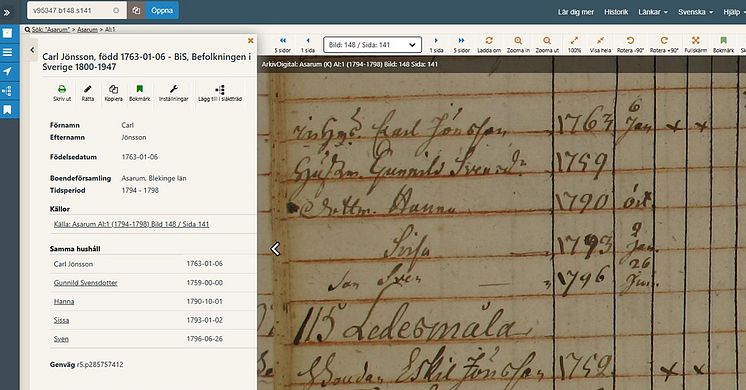 v95347.b148.s141 × Öppna Lär dig mer Historik Länkar Svenska Hjälp
Sök: "Asarum" > Asarum > AI:1
Carl Jönsson, född 1763-01-06 - BiS, Befolkningen i
Sverige 1800-1947
Skriv ut Rätta Kopiera Bokmärk Inställningar Lägg till i släktträd
Förnamn Carl
Efternamn Jönsson
Födelsedatum 1763-01-06
Boendeförsamling Asarum, Blekinge län
Tidsperiod 1794 - 1798
Källor
Källa: Asarum AI:1 (1794-1798) Bild 148 / Sida 141
Samma hushåll
Carl Jönsson 1763-01-06
Gunnild Svensdotter 1759-00-00
Hanna 1790-10-01
Sissa 1793-01-02
Sven 1796-06-26
Genväg r5.p285757412
5 sidor 1 sida Bild: 148 / Sida: 141 1 sida 5 sidor Ladda om Zooma in Zooma ut 100% Visa hela Rotera -90° Rotera +90° Fullskärm Bokmärk
ArkivDigital: Asarum (K) AI:1 (1794-1798) Bild: 148 Sida: 141
Carl Jönsson 1763 6 Jan. × ×
Gunnild 1759
Hanna 1790 oct.
Sissa 1793 2 Jan.
Son Sven 1796 26 Jun.
115 Ledesmåla
Eskil Jönsson 1759 × ×